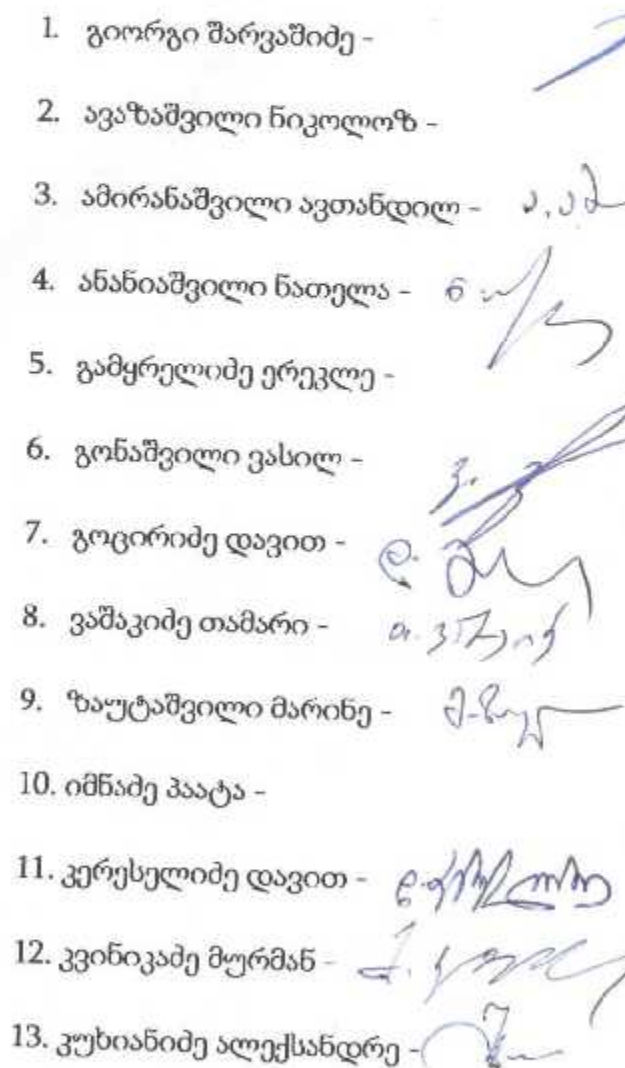 1. გიორგი შარვაშიძე -
2. ავაზაშვილი ნიკოლოზ -
3. ამირანაშვილი ავთანდილ -
4. ანანიაშვილი ნათელა -
5. გამყრელიძე ერეკლე -
6. გონაშვილი ვასილ -
7. გოცირიძე დავით -
8. ვაშაკიძე თამარი -
9. ზაუტაშვილი მარინე -
10. იმნაძე პაატა -
11. კერესელიძე დავით -
12. კვინიკაძე მურმან -
13. კუხიანიძე ალექსანდრე -